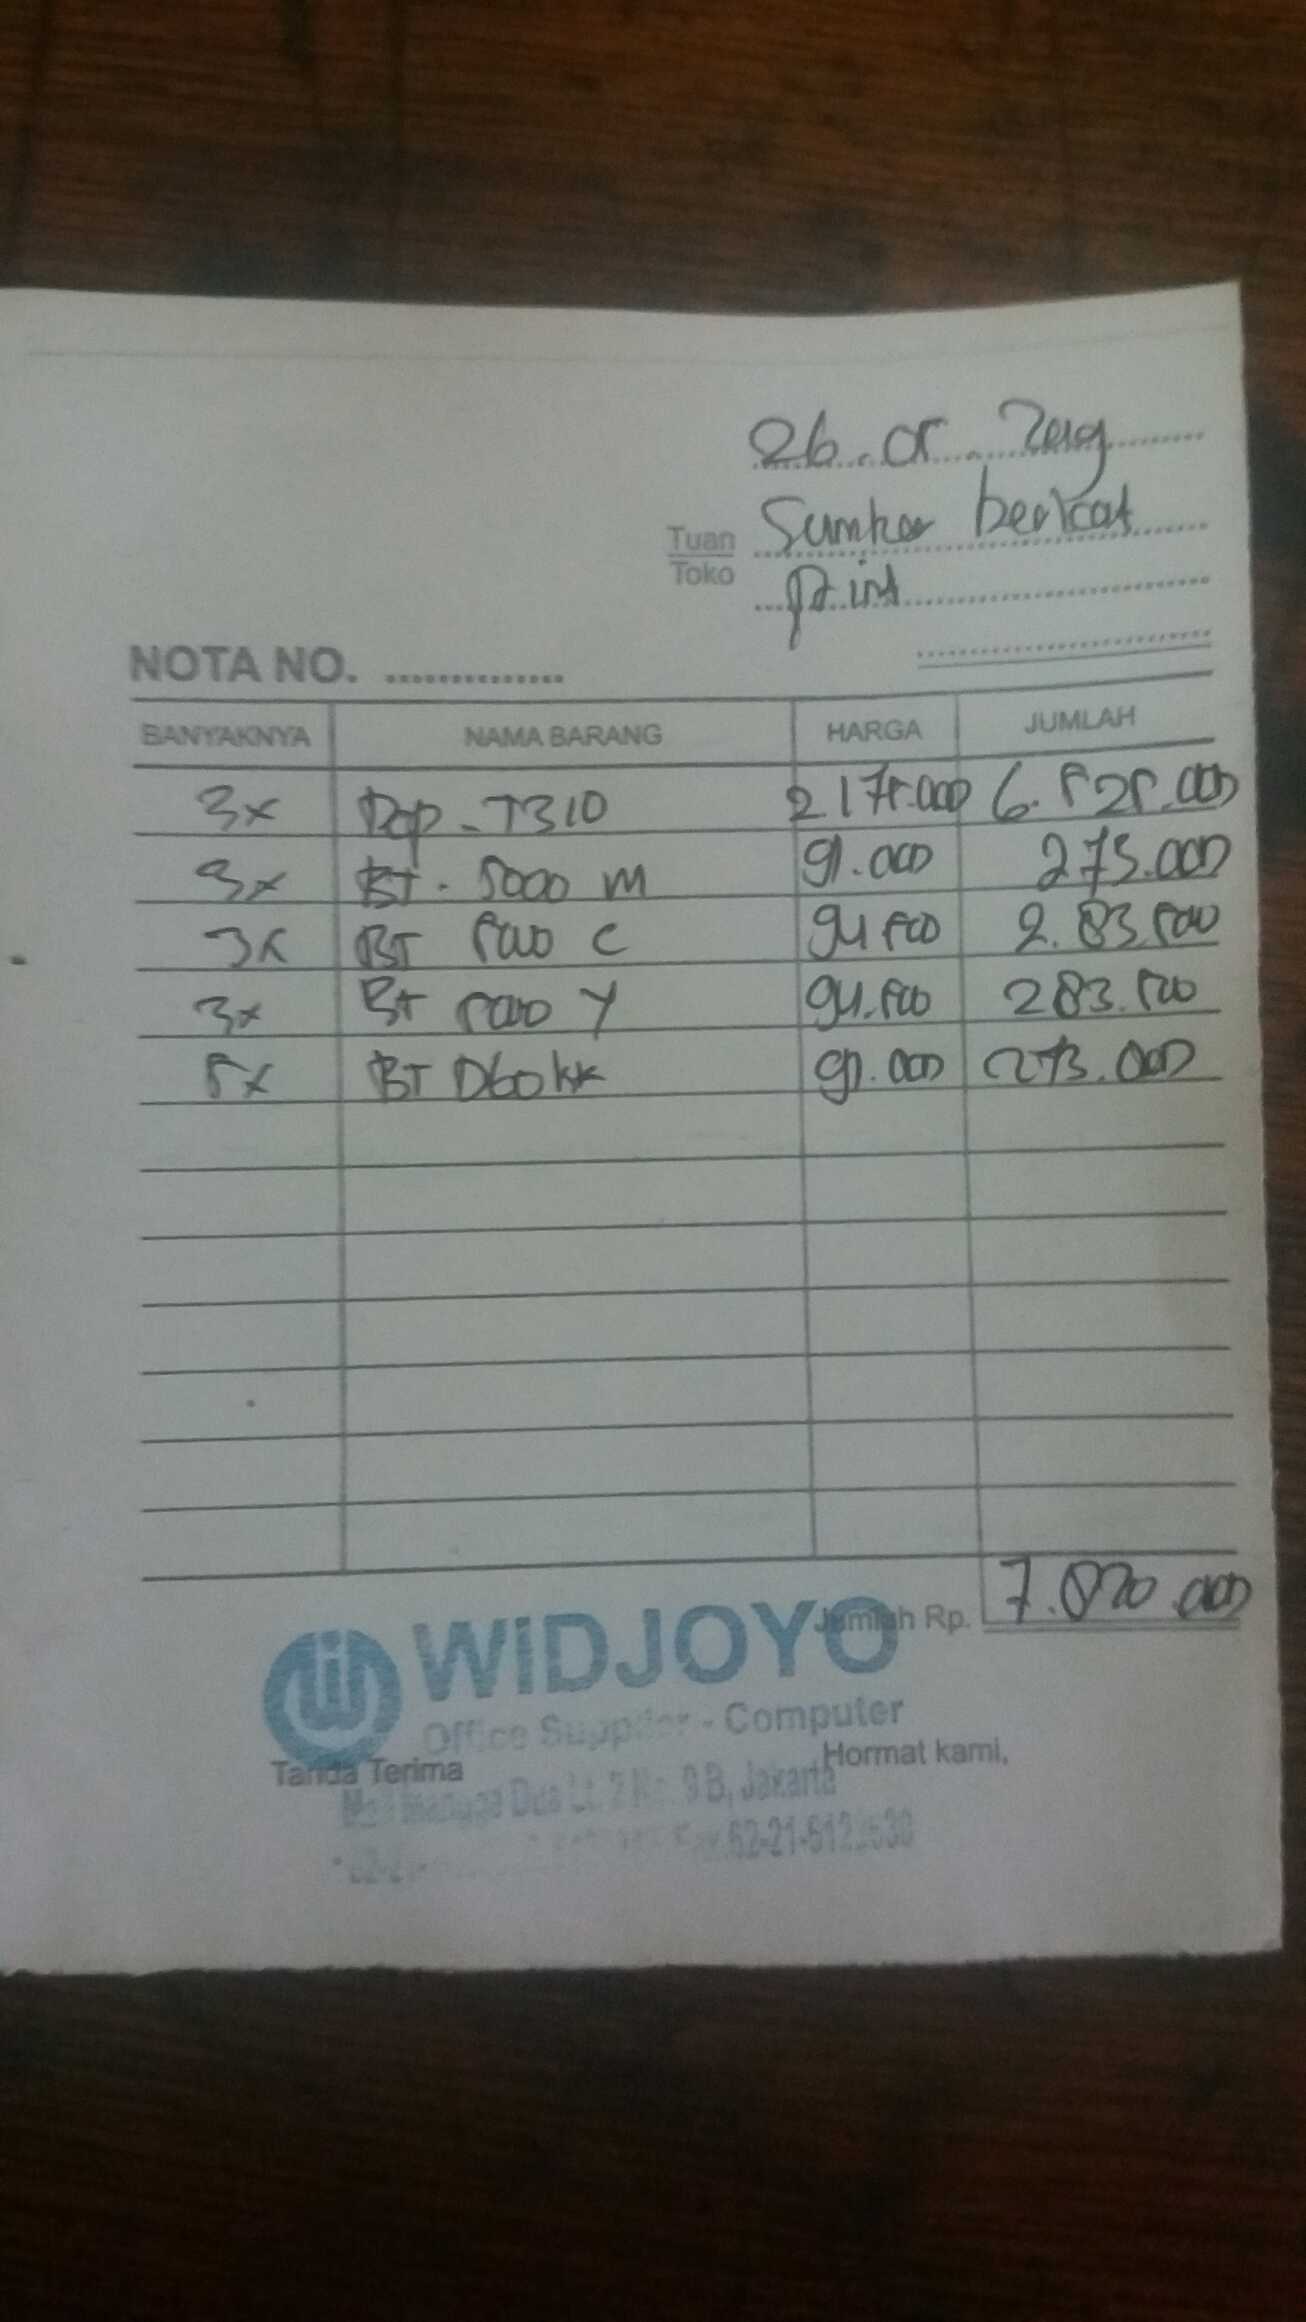 26.05.2019
Tuan Sumber berkat
Toko print
NOTA NO. ..............
BANYAKNYA NAMA BARANG HARGA JUMLAH
3x Dcp - T310 2.175.000 6.525.000
3x BT - 5000 M 91.000 273.000
3x BT 5000 C 94.500 2.83.500
3x BT 5000 Y 94.500 283.500
5x BT D60 kk 91.000 273.000
Jumlah Rp. 7.820.000
WIDJOYO
Office Supplier - Computer
Tanda Terima Hormat kami,
Mall mangga Dua Lt. 2 No. 9 B, Jakarta